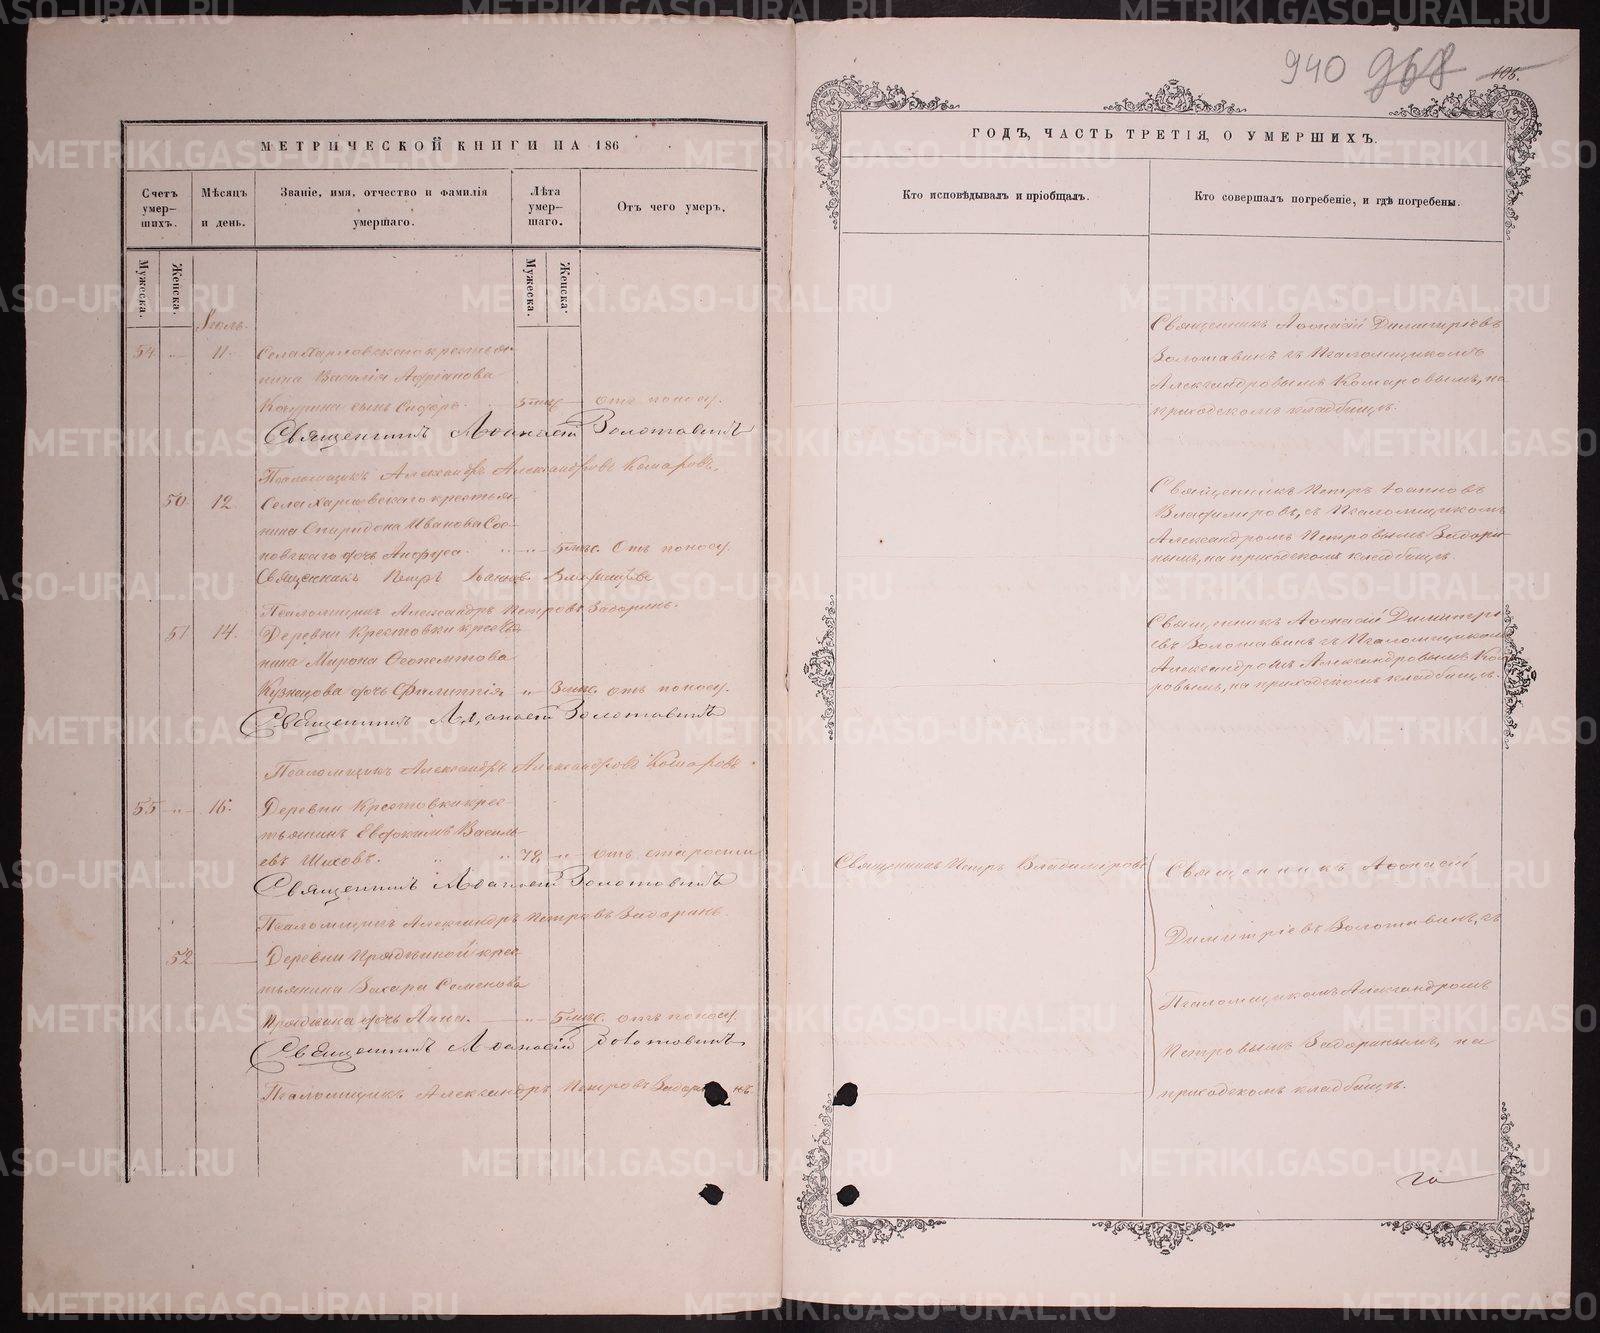 940 968 106.
МЕТРИЧЕСКОЙ КНИГИ НА 186
Счетъ умер-шихъ.
Мѣсяцъ и день.
Званіе, имя, отчество и фамилія умершаго.
Лѣта умер-шаго.
Отъ чего умеръ.
Мужеска.
Женска.
Мужеска.
Женска.
Іюль.
54 „ 11. Села Харловскаго крестья-
нина Василія Адріанова
сынъ 5 мѣс. отъ поносу.
Священникъ Аѳанасій Золотавинъ
Псаломщикъ Александръ Александровъ Комаровъ.
50 12. Села Харловскаго крестья-
нина Спиридона Иванова Сос-
новскаго дочь Анфуса. „ 5 мѣс. Отъ поносу.
Священникъ Петръ Іоанновъ
Псаломщикъ Александръ Петровъ Задоринъ.
51 14. Деревни Крестовки крестья-
нина Мирона
Кузнецова дочь Филиппія „ 3 мѣс. отъ поносу.
Священникъ Аѳанасій Золотавинъ
Псаломщикъ Александръ Александровъ Комаровъ.
55 „ 16. Деревни Крестовки крес-
тьянинъ Евдокимъ Василь-
евъ Шиховъ. „ „ 72 „ отъ старости
Священникъ Аѳанасій Золотавинъ
Псаломщикъ Александръ Петровъ Задоринъ.
52 Деревни Прядеиной крес-
тьянина Захара Семенова
Прядеина дочь Анна. „ 5 мѣс. отъ поносу.
Священникъ Аѳанасій Золотавинъ
Псаломщикъ Александръ Петровъ Задоринъ.
ГОДЪ, ЧАСТЬ ТРЕТІЯ, О УМЕРШИХЪ.
Кто исповѣдывалъ и пріобщалъ.
Кто совершалъ погребеніе, и гдѣ погребены.
Священникъ Аѳанасій Димитріевъ
Золотавинъ съ Псаломщикомъ
Александровымъ Комаровымъ, на
приходскомъ кладбищѣ.
Священникъ Петръ Іоанновъ
Владиміровъ, съ Псаломщикомъ
Александромъ Петровымъ Задори-
нымъ, на приходскомъ кладбищѣ.
Священникъ Аѳанасій Димитрі-
евъ Золотавинъ съ Псаломщикомъ
Александромъ Александровымъ Кома-
ровымъ, на приходскомъ кладбищѣ.
Священникъ Петръ Владиміровъ
Священникъ Аѳанасій
Димитріевъ Золотавинъ, съ
Псаломщикомъ Александромъ
Петровымъ Задоринымъ, на
приходскомъ кладбищѣ.
METRIKI.GASO-URAL.RU